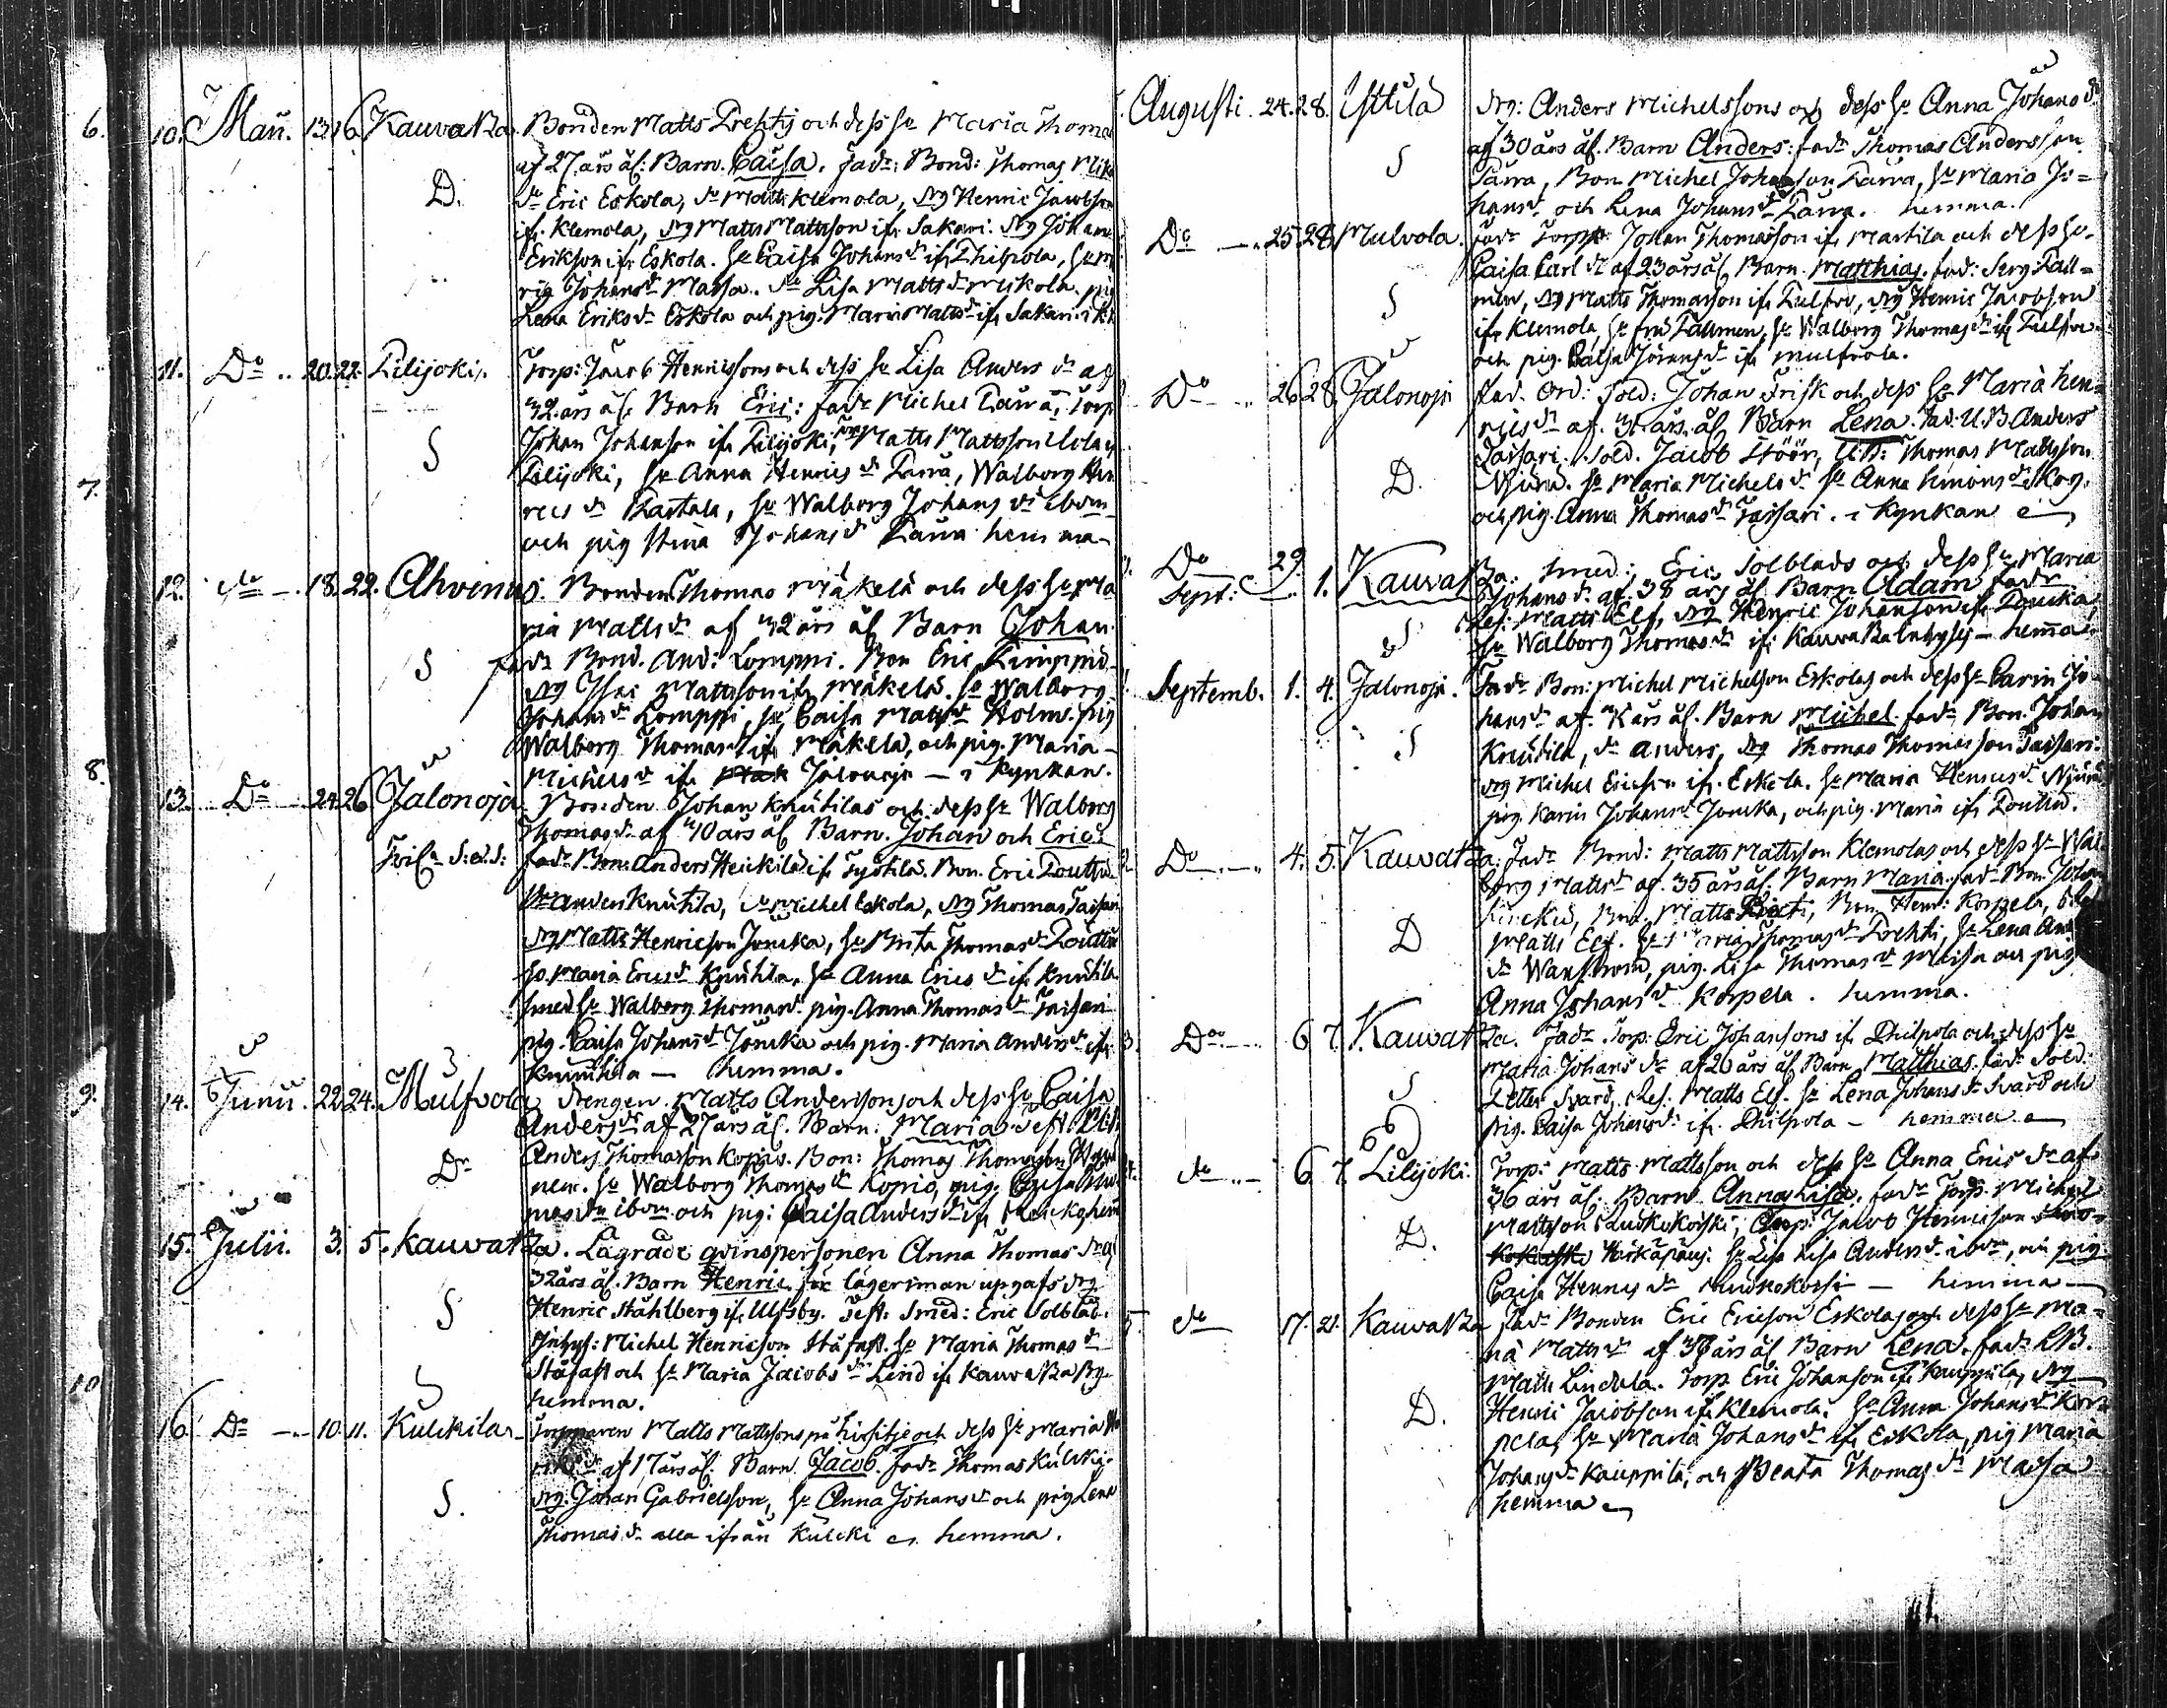 6. 10. Maii. 13. 16. Kauvatza. Bonden Matts Prehtis och dess h:u Maria Thomæ
af 27 års ål: Barn. Caisa. fadr: Bond: Thomas
D. D:o Eric Eskola, d:o Matts Klemola, drg Henric Jacobson
ifr. Klemola, drg Matts Mattsson ifr Sakari. drg Johan
Erikson ifr Eskola. h:u Caisa Johans dr ifr Philpola,
Johans dr Massa. d:o Lisa Matts dr Mikola, pig
Lena Eriks dr Eskola och pig. Maria Matts dr ifr Sakari.
11. D:o .. 20. 22. Lilijoki. Torp: Jacob Henricssons och dess h:u Lisa Anders dr af
32 års ål. Barn Eric: fadr Michel Parra, Torp
S Johan Johanson ifr Lilijoki, drg Matts Mattsson
7. Lilijoki, h:u Anna Henrics dr Parra, Walborg Hen
rics dr Rastala, h:u Walborg Johans dr ibdm
och pig Stina Johans dr Parra hemma
12. d:o 18. 22. Ahvenus. Bonden Thomas Mäkelä och dess h:u Ma
ria Matts dr af 32 års ål Barn Johan
S fadr Bond. And: Lomppi. Bon Eric
drg Mattsson ifr Mäkelä. h:u Walborg
Johans dr Lomppi, h:u Caisa Matts dr Holm. pig
Walborg Thomas dr ifr Mäkelä, och pig. Maria
Michels dr ifr Jalonoja — i kyrkan.
8. 13. D:o 24. 26. Jalonoja Bonden Johan Knuutilas och dess h:u Walborg
Thomas dr af 40 års ål Barn. Johan och Eric:
fadr Bon: Anders Heikilä ifr Sysilä. Bon. Eric Pouttu
d:o Anders Knuutila, d:o Michel Eskola, drg Thomas Tassari
drg Matts Henricson Joncka, h:u Brita Thomas dr Pouttu
h:u Maria Erics dr Knuutila, h:u Anna Erics dr ifr Knuutila
smed h:u Walborg Thomas dr pig. Anna Thomas dr Tassari
pig. Caisa Johans dr Joncka och pig. Maria Anders dr ifr
Knuutila — hemma.
9. 14. Junii. 22. 24. Mulfvola Drengen Matts Andersson och dess h:u Caisa
Anders dr af 27 års ål. Barn: Maria
D Anders Thomasson Kopio. Bon: Thomas Thomasson
h:u Walborg Thomas dr Kopio, pig. Caisa Tho
mas dr ibdm och pig: Caisa Anders dr ifr hem
15. Julii. 3. 5. Kauvatza. Lägrade qvinspersonen Anna Thomas dr af
32 års ål. Barn Henric. för lägersman upgafs drg
S Henric Ståhlberg ifr Ulfsby. Test. Smed: Eric Solblad.
Inhys: Michel Henricson Ståfast. h:u Maria Thomas dr
Ståfast och h:u Maria Jacobs dr Lind ifr Kauvatza By
10 hemma.
16. D:o 10. 11. Kulckila Torpparen Matts Mattssons på och dess h:u Maria
af 17 års ål. Barn Jacob. fadr Thomas Kulcki.
S. drg: Johan Gabrielsson, h:u Anna Johans dr och pig Lena
Thomas dr alla ifrån Kulcki hemma.
Augusti. 24. 28. Yttilä drg: Anders Michelssons och dess h:u Anna Johans dr
af 30 års ål. Barn Anders: fadr Thomas Andersson
S Parra, Bon Michel Johansson Parra, h:u Maria Jo=
hans dr och Lena Johans dr Parra. hemma.
D:o 25. 28. Mulvola. Fadr Torp: Johan Thomasson ifr Marttila och dess h:u
Caisa Carl dr af 23 års ål. Barn. Matthias. fad: Serg: Fall=
S men, drg Matts Thomasson ifr drg Henric Jacobson
ifr Klemola, h:u Fallmen, h:u Walborg Thomas dr ifr
och pig. Caisa Jörans dr ifr Mulfvola.
D:o 26 28. Jalonoja Fad. Ord: Sold: Johan Frisk och dess h:u Maria Hen=
rics dr af. 31 års ål Barn Lena. fad: U.B. Anders
Tassari. Sold. Jacob Stöör, U.B: Thomas Mattsson
D. h:u Maria Michels dr h:u Anna Simons dr Skog.
och pig. Anna Thomas dr Tassari. i kyrkan
D:o 29. Sept: 1. Kauvatza. Smed: Eric Solblads och dess h:u Maria
Johans dr af 38 års ål Barn Adam fadr
S Matts Elf, drg Henric Johanson ifr
h:u Walborg Thomas dr ifr Kauvatza — hemma.
Septemb. 1. 4. Jalonoja. Fadr Bon: Michel Michelson Eskolas och dess h:u Carin Jo
hans dr af års ål. Barn Michel. fadr Bon. Johan
S Knuutila, d:o Anders, drg Thomas Thomasson Tassari.
drg Michel Ericson ifr. Eskola. h:u Maria Henrics dr
pig. Karin Johans dr Joncka, och pig. Maria ifr Pouttu.
D:o 4. 5. Kauvatza. Fadr Bond: Matts Mattsson Klemolas och dess h:u Wal
borg Matts dr af. 35 års ål. Barn Maria. fadr Bon: Johan
Bon. Matts Bon Henr: Korpela,
D Matts Elf. h:u Maria Thomas dr Prehti, h:u Lena And
dr Wanström, pig. Lisa Thomas dr Massa och pig
Anna Johans dr Korpela. hemma.
D:o 6 7. Kauvatza. Fadr Torp: Eric Johansons ifr Philpola och dess h:u
Maria Johans dr af 26 års ål Barn Matthias. fadr Sold:
S Petter Svärd, Matts Elf. h:u Lena Johans dr Svärd och
pig. Caisa Johans dr ifr. Philpola — hemma
d:o 6 7. Lilijoki: Torp: Matts Mattsson och dess h:u Anna Erics dr af
36 års ål: Barn Anna Lisa. fadr Torp. Michel
D. Mattsson Ruokokoski, Torp: Jacob Henricson
h:u Lisa Anders dr ibdm, och pig
Caisa Henrics dr Ruokokoski — hemma —
d:o 17. 21. Kauvatza Fadr Bonden Eric Ericson Eskolas och dess h:u Ma=
ria Matts dr af 38 års ål Barn Lena. fadr LB.
Matts Lindula. Torp Eric Johanson ifr Kauppila, drg
D. Henric Jacobson ifr Klemola. h:u Anna Johans dr Kor=
pela, h:u Maria Johans dr ifr Eskola, pig Maria
Johans dr Kauppila, och Beata Thomas dr Massa
hemma